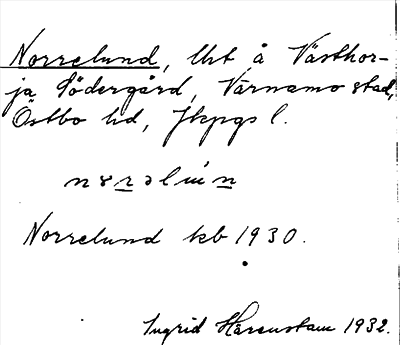 Norrelund, lht å Västhor-
ja Södergård, Värnamo stad,
Östbo hd, Jkpgs l.
Norrelund kb 1930.
Ingrid Härenstam 1932.